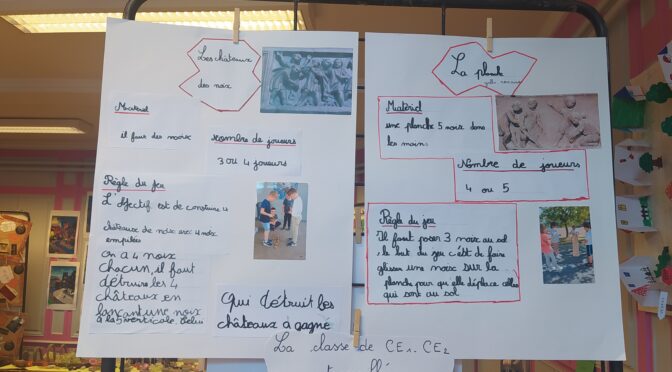 Les châteaux
des noix
Matériel
il faut des noix
nombre de joueurs
3 ou 4 joueurs
Règle du jeu
L'objectif est de construire 4
châteaux de noix avec 4 noix
empilées
on a 4 noix
chacun, il faut
détruire les 4
châteaux en
lançant une noix
à la verticale
Qui détruit les
châteaux à gagné
La planche
Matériel
une planche 5 noix dans
les mains.
Nombre de joueurs
4 ou 5
Règle du jeu
Il faut poser 3 noix au sol
le but du jeu c'est de faire
glisser une noix sur la
planche pour qu'elle déplace celles
qui sont au sol
La classe de CE1. CE2